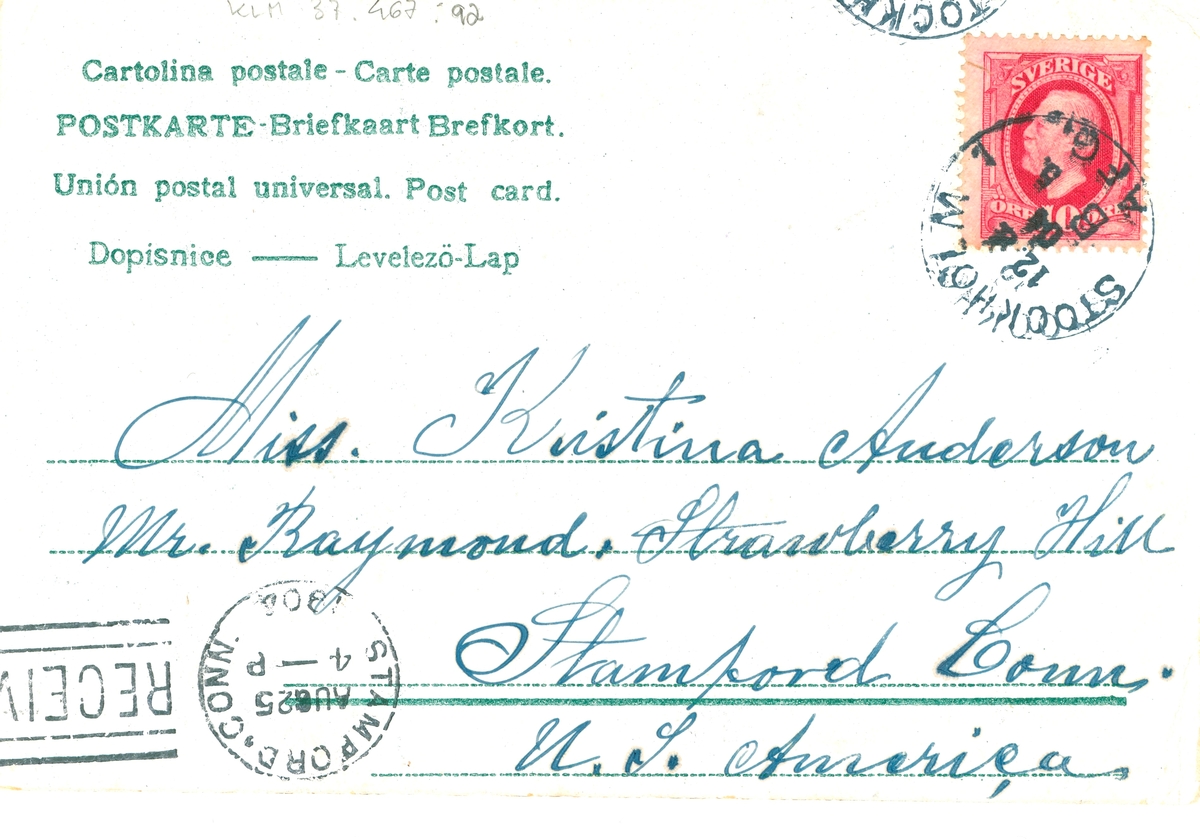 KLM 37.467:92
STOCKH
Cartolina postale - Carte postale.
POSTKARTE - Briefkaart Brefkort.
Unión postal universal. Post card.
Dopisnice — Levelezö-Lap
SVERIGE
ÖRE 10 ÖRE
STOCKHOLM 1
12
Miss. Kristina Anderson
Mr. Raymond. Strawberry Hill
Stamford Conn.
U. S. America
STAMFORD, CONN.
AUG 25
4 — P
RECEIV